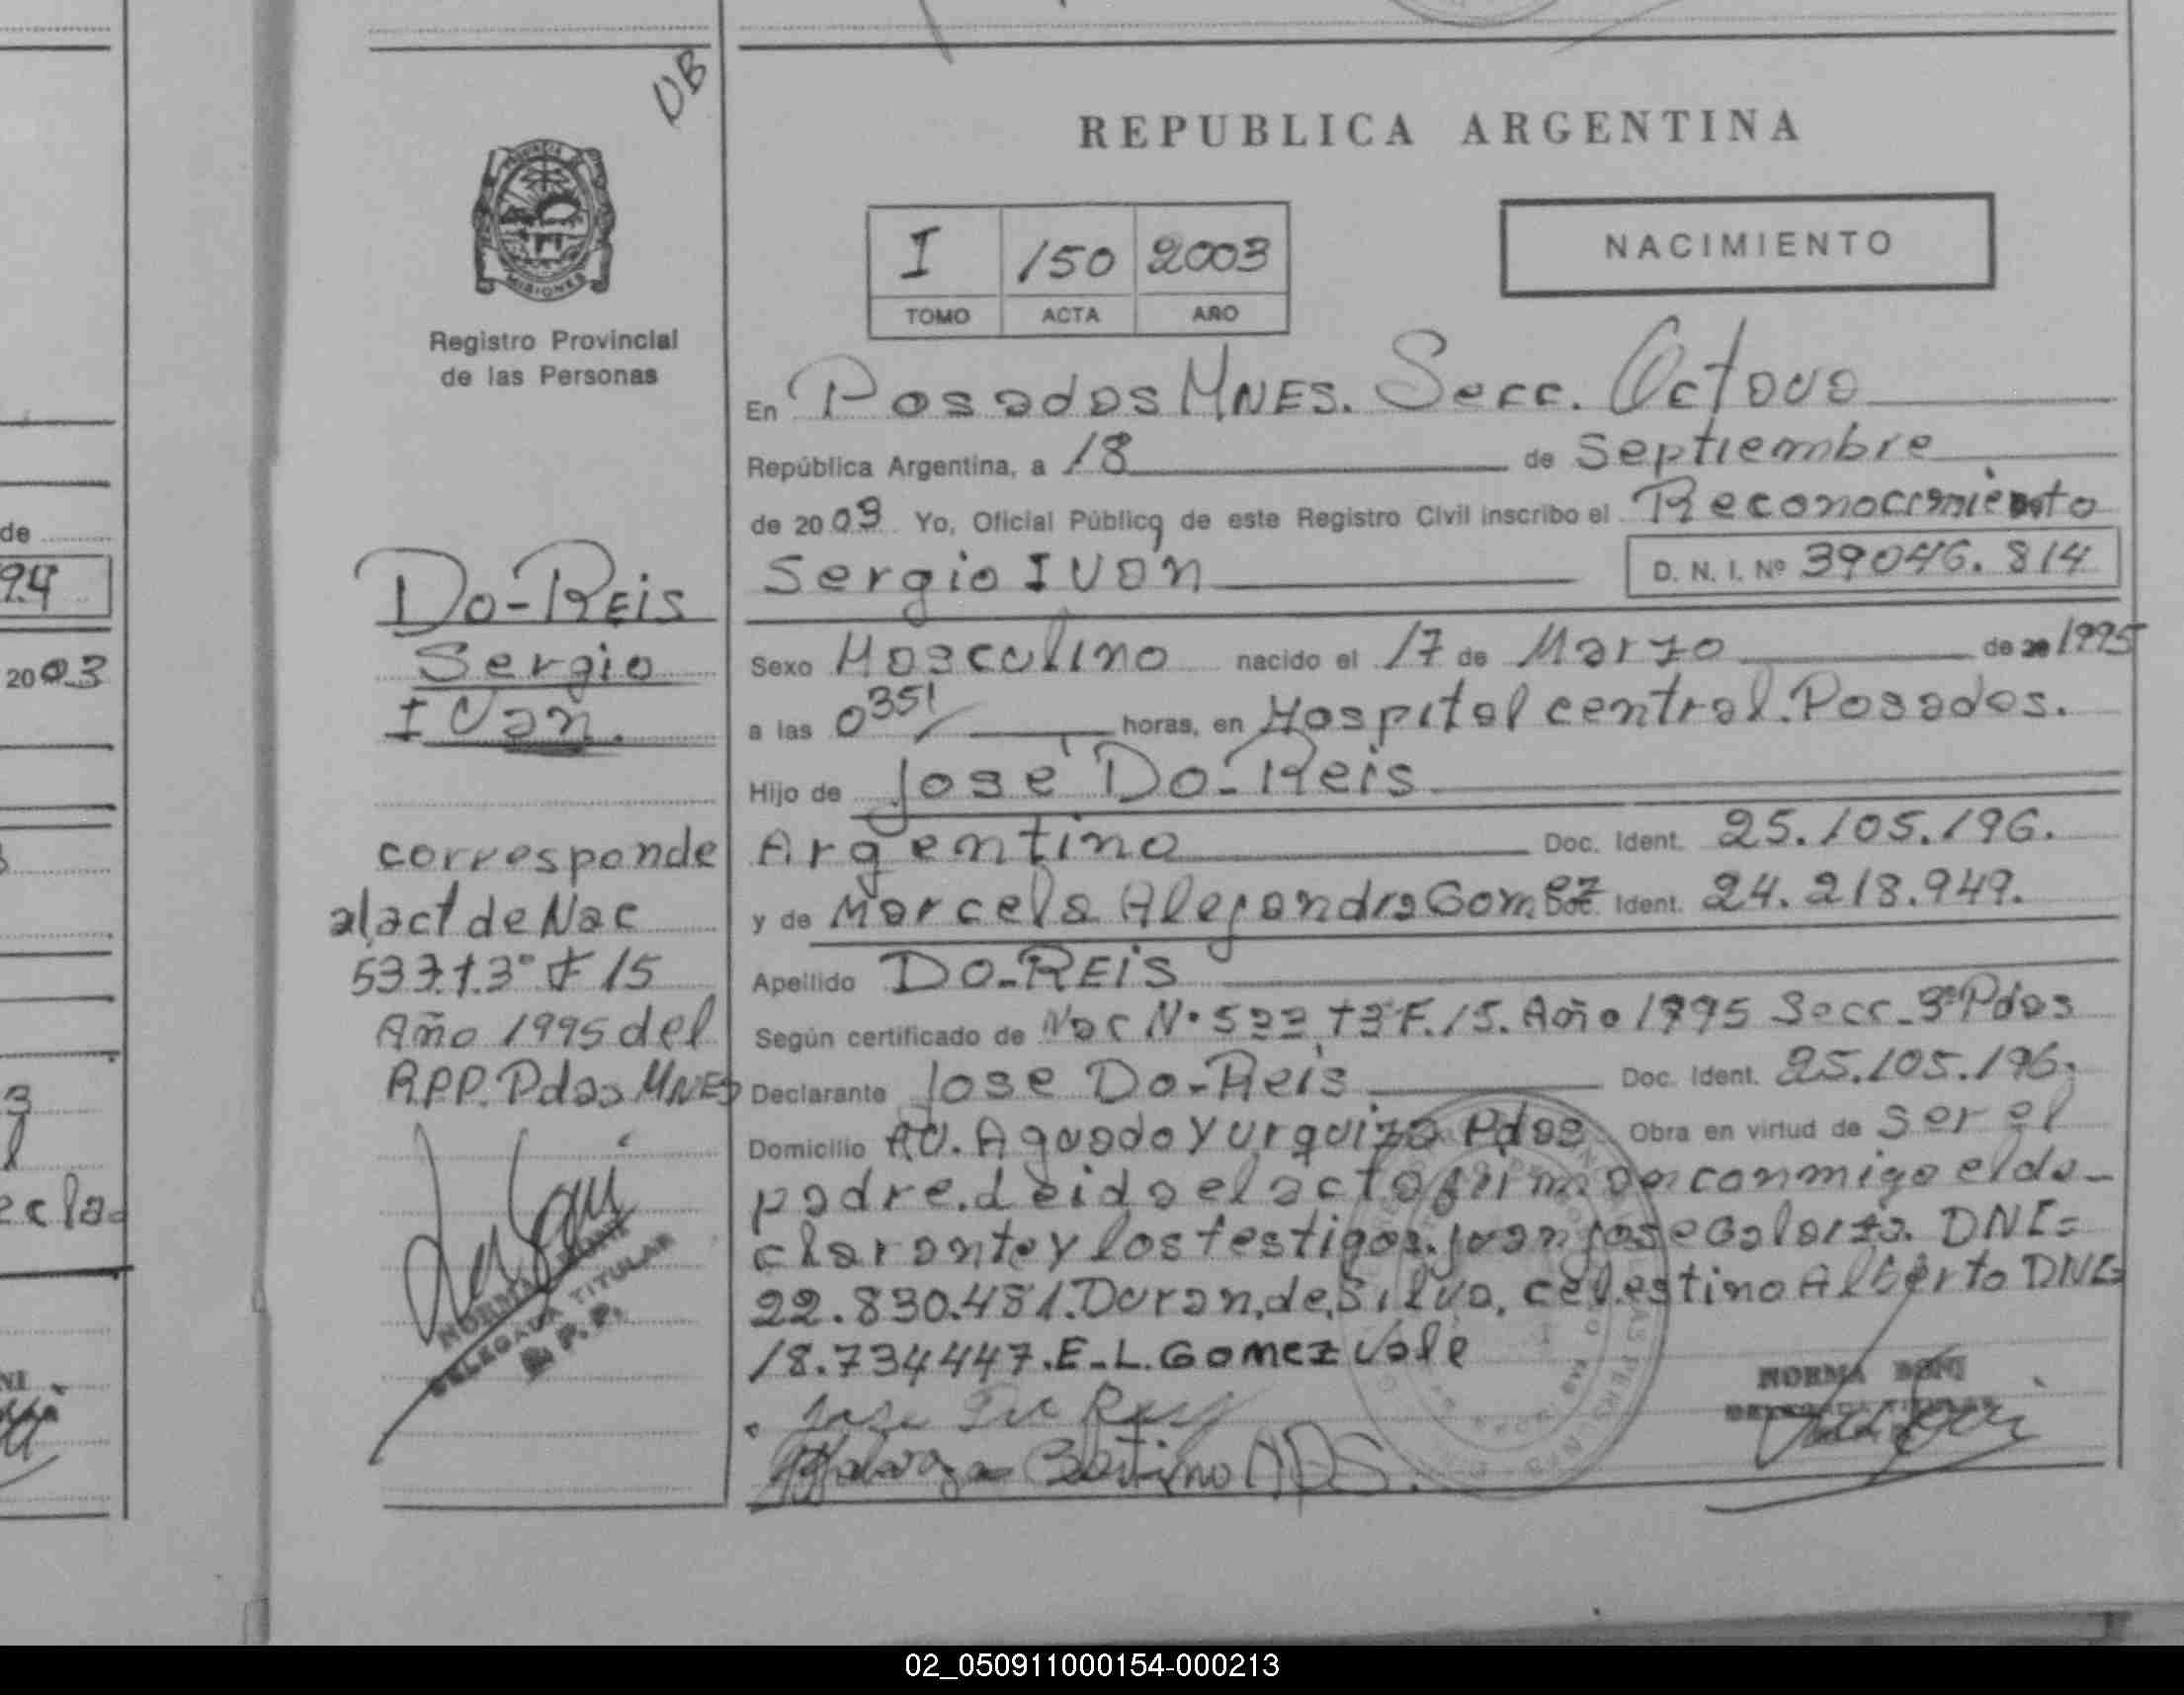 UB
REPUBLICA ARGENTINA
I 150 2003
TOMO ACTA AÑO
NACIMIENTO
PROVINCIA DE
MISIONES
Registro Provincial
de las Personas
En Posadas MNES. Secc. Octava
República Argentina, a 18 de Septiembre
de 2003 Yo, Oficial Público de este Registro Civil inscribo el Reconocimiento
Sergio Ivan D. N. I. Nº 39046.814
Sexo Masculino nacido el 17 de Marzo de 20 1995
a las 0351 horas, en Hospital central. Posadas.
Hijo de José Do-Reis
Argentino Doc. Ident. 25.105.196.
y de Marcela Alejandra Gomez Doc. Ident. 24.218.949.
Apellido DO-REIS
Según certificado de Nac Nº 533 T3 F.15. Año 1995 Secc. 3ª Pdas
Declarante Jose Do-Reis Doc. Ident. 25.105.196.
Domicilio AV. Aguado y Urquiza Pdas Obra en virtud de ser el
padre. Leida el acta firman conmigo el de-
clarante y los testigos. Juan Jose Galarza. DNI=
22.830.481. Duran, de, Silva, celestino Alberto DNI=
18.734447. E-L. Gomez Vale
NORMA BONI
DELEGADA TITULAR
DO-REIS
Sergio
Ivan.
corresponde
al act de Nac
533 T.3º F 15
Año 1995 del
R.P.P. Pdas MNES
NORMA BONI
DELEGADA TITULAR
R. P. P.
de
94
2003
3
ecla
02_050911000154-000213